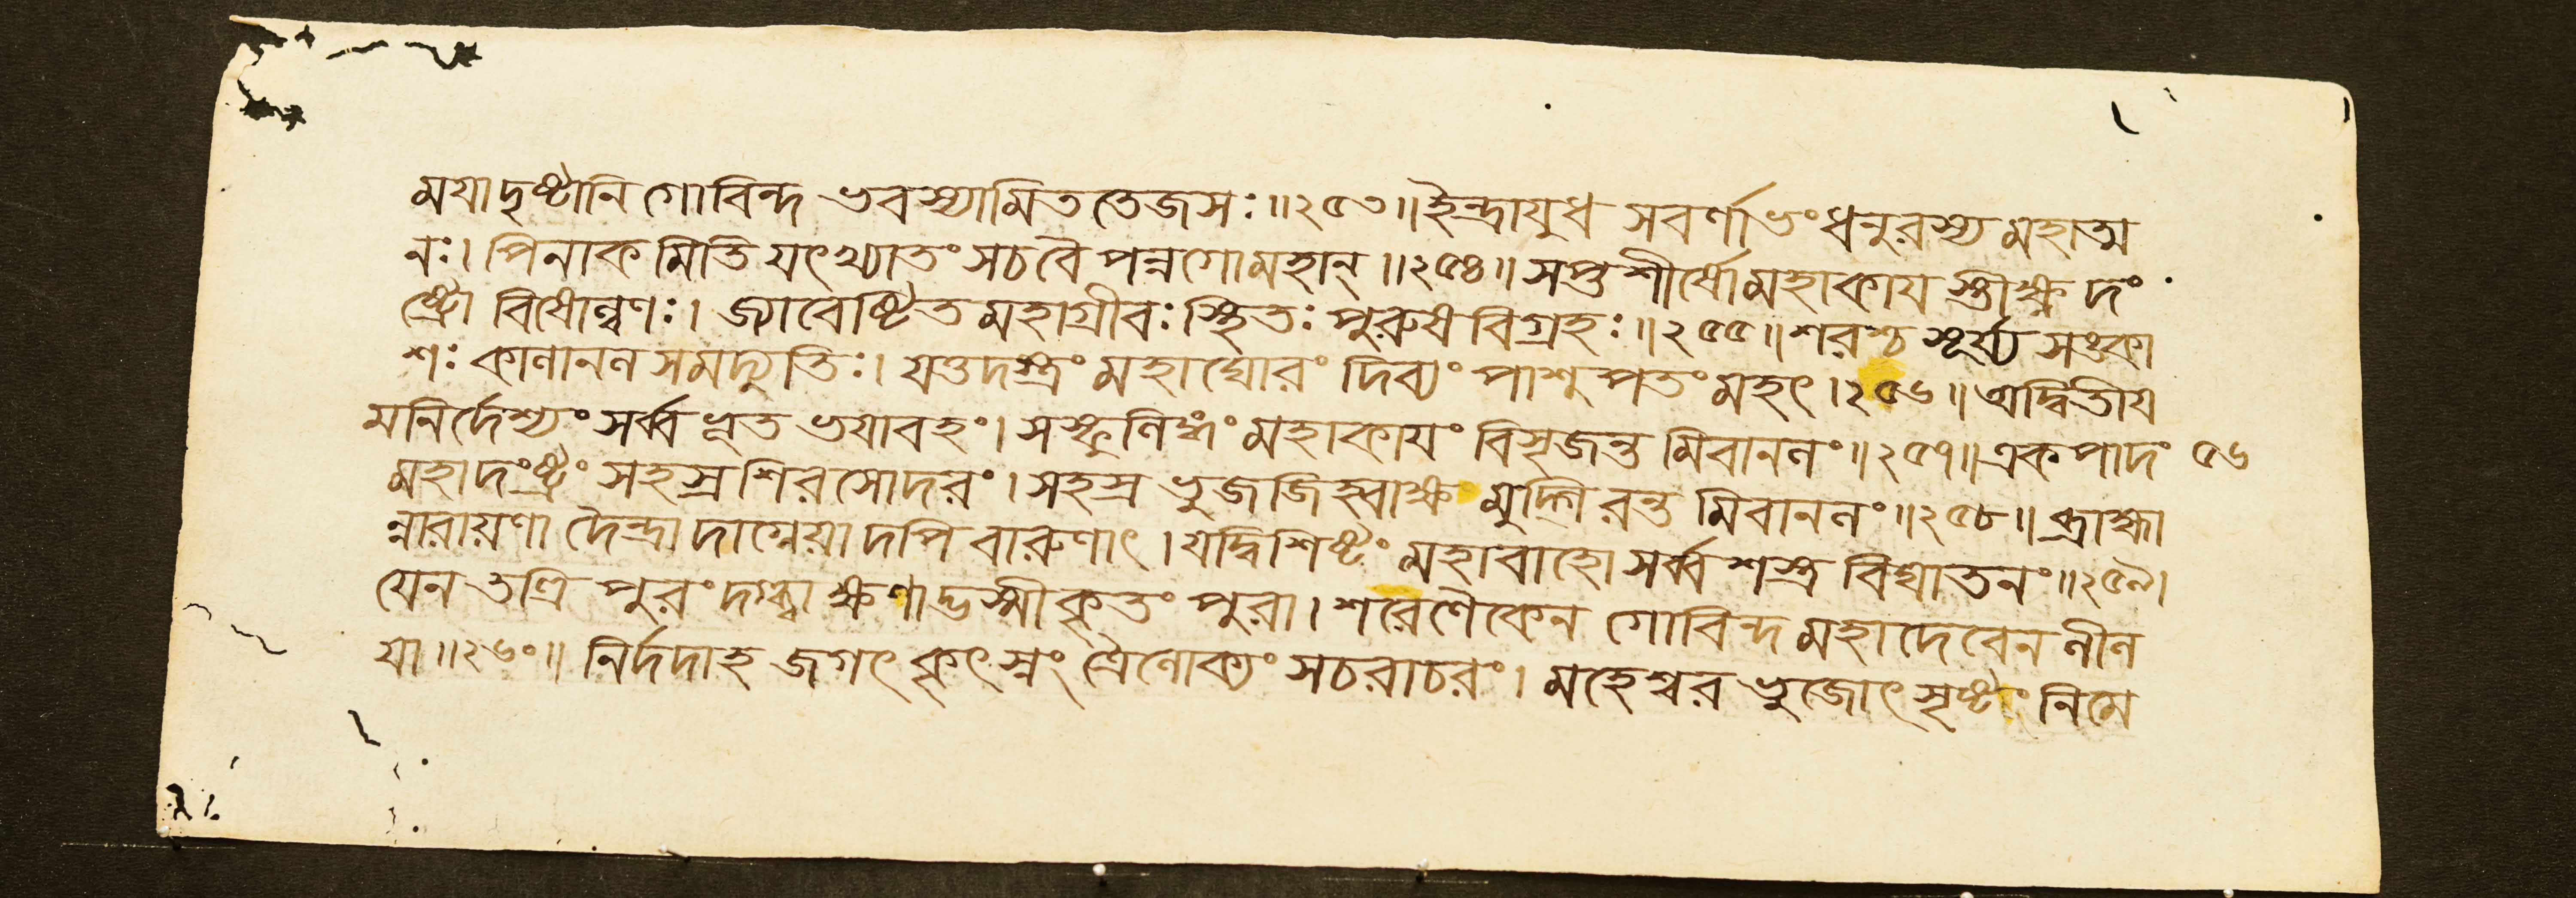 ময়াদৃষ্টানি গোবিন্দ ভবস্যামিত তেজসঃ॥২৫৩॥ইন্দ্রাযুধ সবর্ণাভংধনুরস্য মহাত্ম
নঃ। পিনাক মিতি যৎখ্যাতং সচবৈ পন্নগোমহান্॥২৫৪॥ সপ্ত শীর্ষোমহাকায স্তীক্ষ্ণ দং
ষ্ট্রো বিষোল্বণঃ। জ্যাবেষ্টিত মহাগ্রীবঃ স্থিতঃ পুরুষ বিগ্রহঃ॥২৫৫॥শরশ্চ সূর্য্য সঙ্কা
শঃ কালানল সমদ্যুতিঃ। যত্তদস্ত্রং মহাঘোরং দিব্যং পাশুপতং মহৎ।২৫৬॥ অদ্বিতীয
মনির্দেশ্যং সর্ব্ব ভূত ভযাবহং। সস্ফুলিঙ্গং মহাকাযং বিসৃজন্ত মিবাননং॥২৫৭॥একপাদং ৫৬
মহাদংষ্ট্রং সহস্র শিরসোদরং। সহস্র ভুজজিহ্বাক্ষ মুদ্গিরন্ত মিবাননং॥২৫৮॥ ব্রাহ্মা
ন্নারায়ণা দৈন্দ্রাদাগ্নেয়াদপি বারুণাৎ। যদ্বিশিষ্টং মহাবাহো সর্ব্ব শস্ত্র বিঘাতনং॥২৫৯।
যেন তত্রি পুরং দগ্ধ্বা ক্ষণাদ্ভস্মীকৃতং পুরা। শরেণৈকেন গোবিন্দ মহাদেবেন লীল
যা॥২৬০॥ নির্দদাহ জগৎ কৃৎস্নং ত্রৈলোক্যং সচরাচরং। মহেশ্বর ভুজোৎসৃষ্টং নিমে